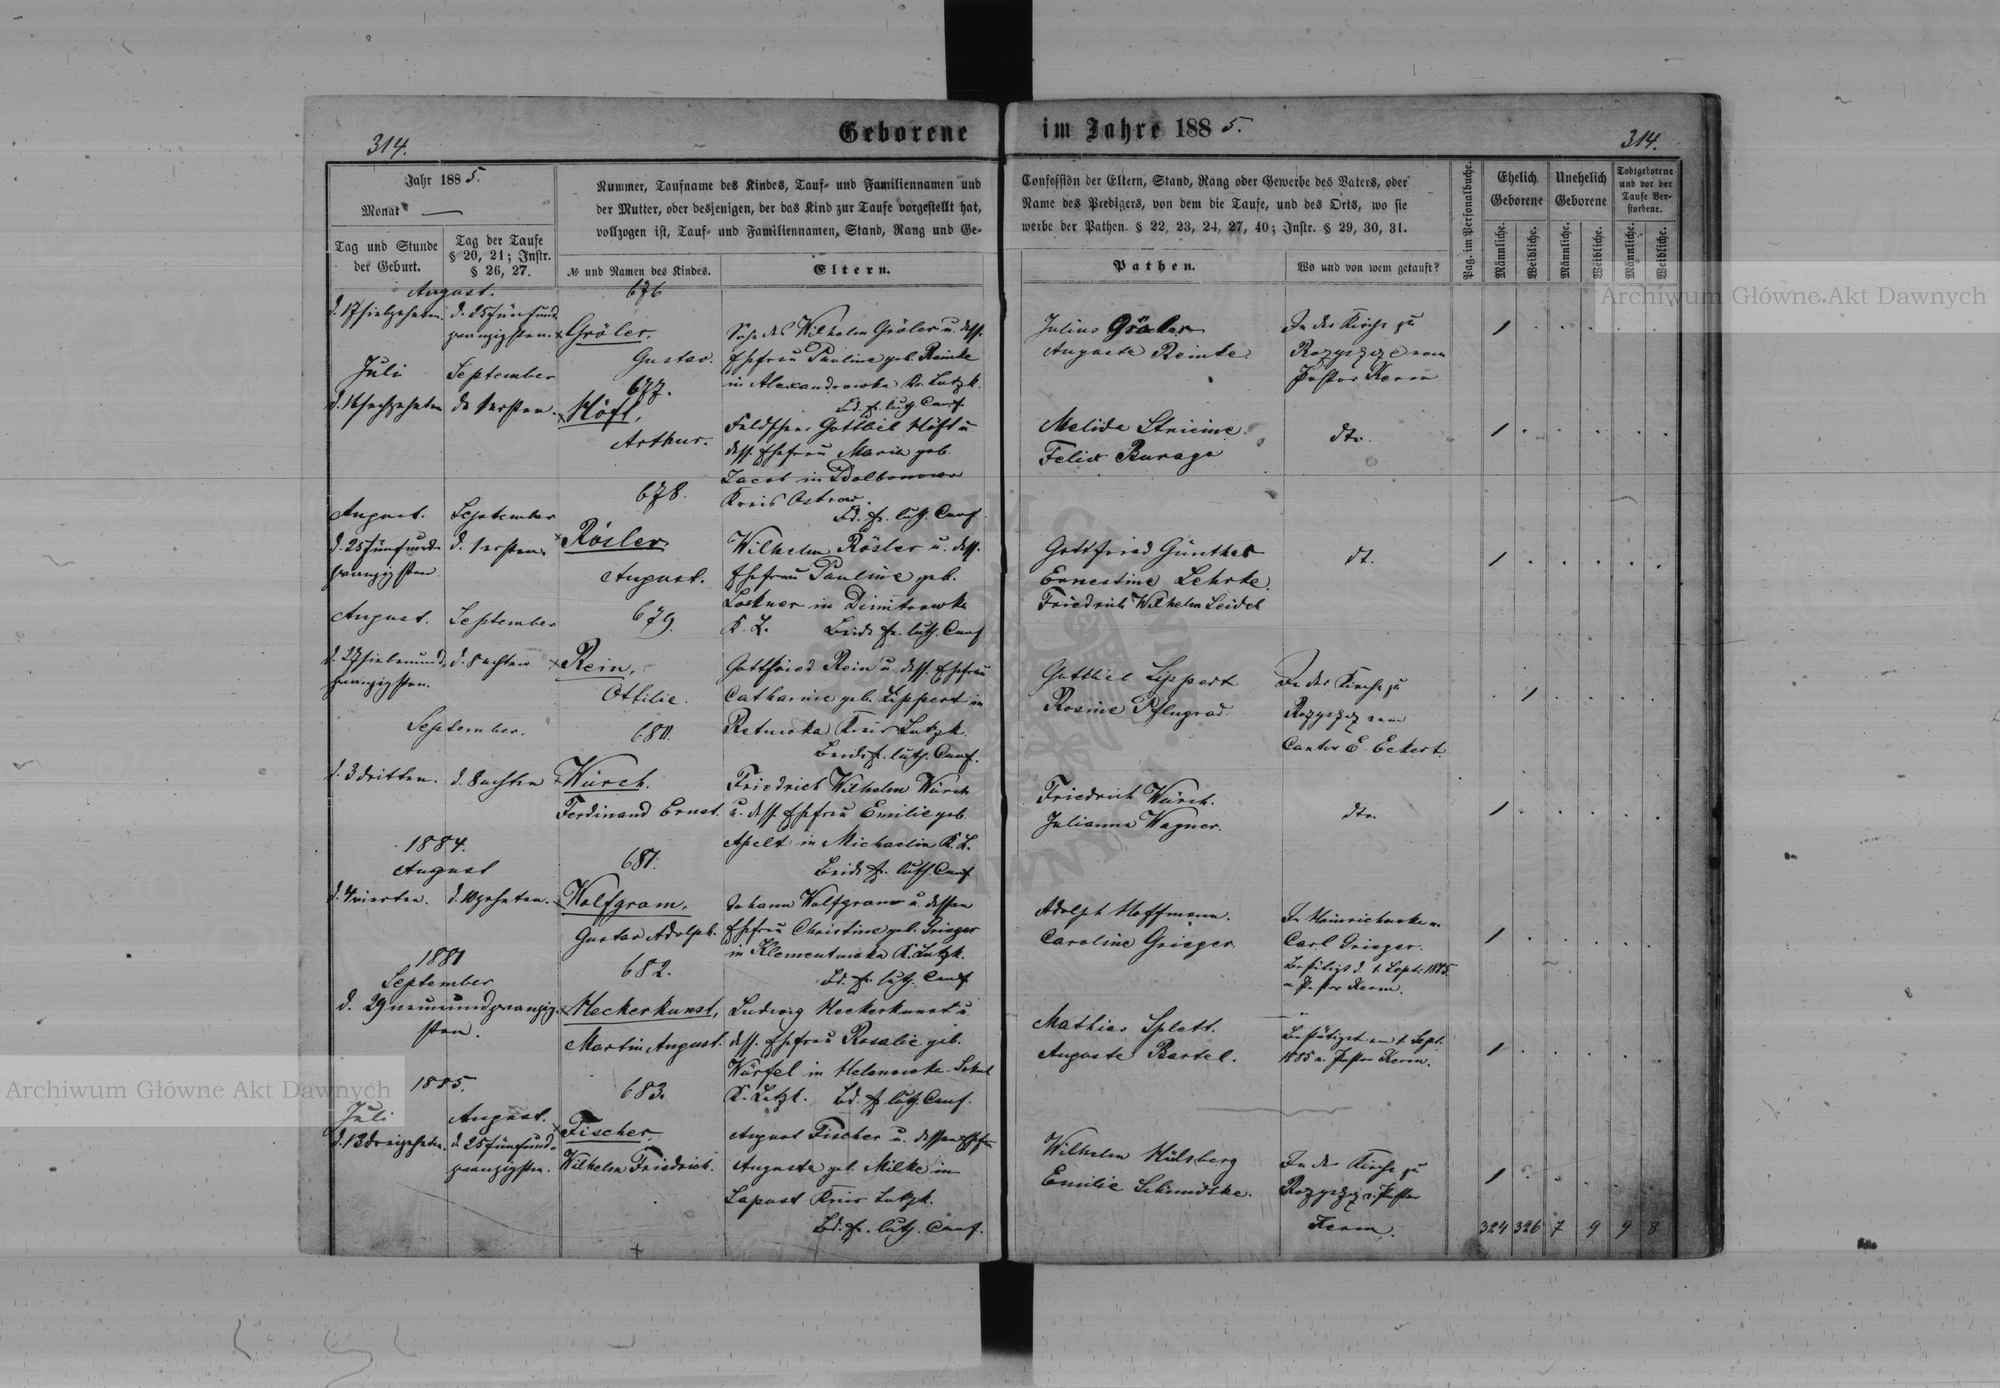 Geborene im Jahre 1885.
314.
314.
Jahr 1885.
Monat
Tag und Stunde der Geburt.
Tag der Taufe § 20, 21; Instr. § 26, 27.
Nummer, Taufname des Kindes, Tauf- und Familiennamen und
der Mutter, oder desjenigen, der das Kind zur Taufe vorgestellt hat,
vollzogen ist, Tauf- und Familiennamen, Stand, Rang und Ge-
№ und Namen des Kindes.
Eltern.
Confession der Eltern, Stand, Rang oder Gewerbe des Vaters, oder
Name des Predigers, von dem die Taufe, und des Orts, wo sie
werbe der Pathen. § 22, 23, 24, 27, 40; Instr. § 29, 30, 31.
Pathen.
Wo und von wem getauft?
Pag. im Personalbuche.
Ehelich Geborene
Unehelich Geborene
Todtgeborene und vor der Taufe Verstorbene.
Männliche.
Weibliche.
Männliche.
Weibliche.
Männliche.
Weibliche.
August.
676
d. 17 siebzehnten.
d. 25 fünfund-
zwanzigsten.
Gröler,
Gustav.
Wilhelm Gröler u. dess.
Ehefrau Pauline geb. Reinke
in Alexandrowka Kr. Lutzk.
Bd. ev. luth. Conf.
Julius Gröler
Auguste Reinke
In der Kirche zu
Rozyszcze vom
Pastor Kerm
Juli
September
677.
d. 16 sechzehnten
d. 1 ersten.
Höft,
Arthur.
Feldscheer Gottlieb Höft u.
dess. Ehefrau Maria geb.
Kreis Ostrow.
Bd. ev. luth. Conf.
Felix Buraga
dto.
August.
September
678.
d. 25 fünfund-
zwanzigsten
d. 1 ersten.
Rösler
August.
Wilhelm Rösler u. dess.
Ehefrau Pauline geb.
in Dimitrowka
K. L. Beide ev. luth. Conf.
Gottfried Günther
Ernestine Lehrke.
Friedrich Wilhelm Seidel
dt.
August.
September
679.
d. 27 siebenund-
zwanzigsten.
d. 8 achten
Rein,
Ottilie.
Gottfried Rein u. dess. Ehefrau
Catharine geb. Lippert in
Kreis Lutzk.
Beide ev. luth. Conf.
Gottlieb Lippert
Rosine Pflugrad.
In der Kirche zu
Rozyszcz vom
Cantor E. Eckert.
September.
680.
d. 3 dritten.
d. 8 achten
Würch.
Ferdinand Ernst.
Friedrich Wilhelm Würch
u. dess. Ehefrau Emilie geb.
Apelt in Michaelin K. L.
Beide ev. luth. Conf.
Friedrich Würch.
Julianna Wagner.
dto.
1884.
August
681.
d. 4 vierten.
d. 10 zehnten.
Wolfgram,
Gustav Adolph.
Johann Wolfgram u. dessen
Ehefrau Christine geb. Grieger
in Klementowka K. Lutzk.
Bd. ev. luth. Conf.
Adolph Hoffmann.
Caroline Grieger
Carl Grieger.
Bestätigt d. 1. Sept. 1885.
v. Pastor Kerm.
1881
September
682.
d. 29 neunundzwanzig-
sten.
Heckerkunst,
Martin August.
Ludwig Heckerkunst u.
dess. Ehefrau Rosalie geb.
Würfel in Helenowka-
K. Lutzk. Bd. ev. luth. Conf.
Mathias Splett.
Auguste Bartel.
Bestätigt am 1. Sept.
1885 v. Pastor Kerm.
1885.
Juli
August.
683.
d. 13 dreizehnten.
d. 25 fünfund-
zwanzigsten.
Fischer,
Wilhelm Friedrich.
August Fischer u. dessen Ehefr.
Auguste geb. Milke in
Kreis Lutzk.
Bd. ev. luth. Conf.
Wilhelm Hülsberg
Emilie Schmidtke.
In der Kirche zu
Rozyszcz v. Pastor
Kerm.
324 326 7 9 9 8
Archiwum Główne Akt Dawnych
Archiwum Główne Akt Dawnych